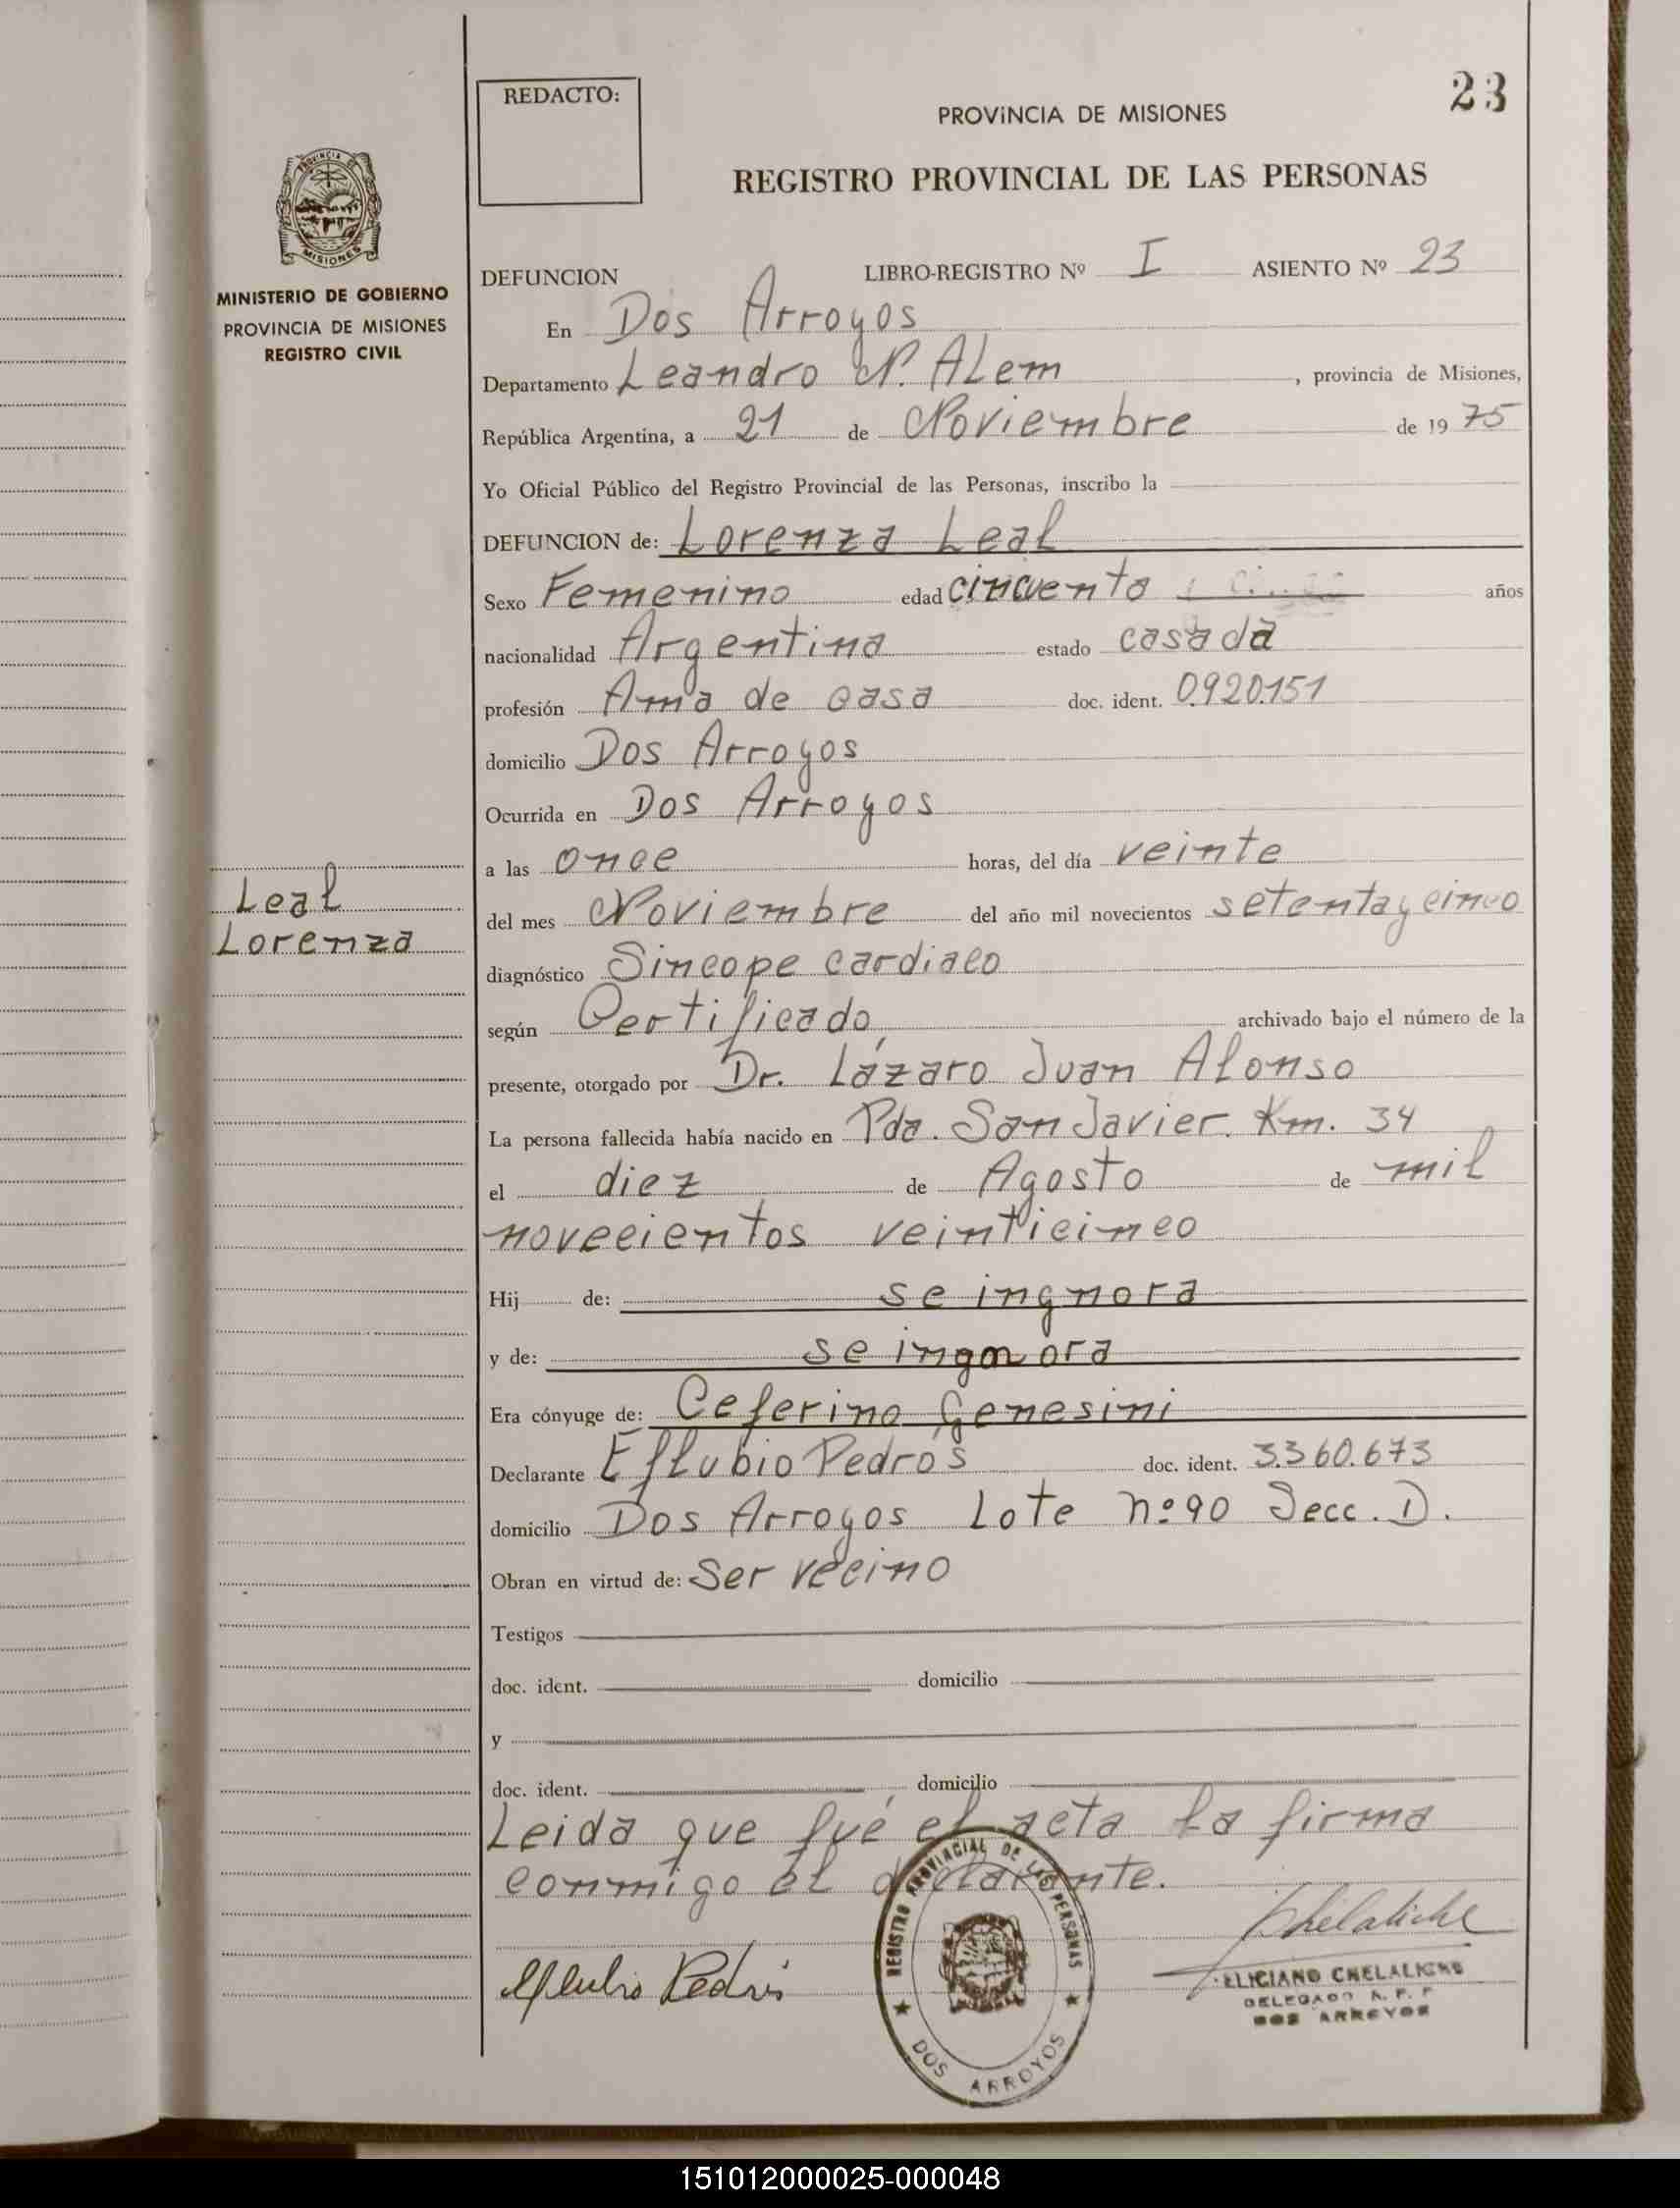 23
REDACTO:
PROVINCIA DE MISIONES
REGISTRO PROVINCIAL DE LAS PERSONAS
PROVINCIA DE
MISIONES
MINISTERIO DE GOBIERNO
PROVINCIA DE MISIONES
REGISTRO CIVIL
DEFUNCION LIBRO-REGISTRO Nº I ASIENTO Nº 23
En Dos Arroyos
Departamento Leandro N. ALem, provincia de Misiones,
República Argentina, a 21 de Noviembre de 1975
Yo Oficial Público del Registro Provincial de las Personas, inscribo la
DEFUNCION de: Lorenza Leal
Sexo Femenino edad cincuenta años
nacionalidad Argentina estado casada
profesión Ama de casa doc. ident. 0.920.151
domicilio Dos Arroyos
Ocurrida en Dos Arroyos
a las once horas, del día veinte
Leal
Lorenza
del mes Noviembre del año mil novecientos setenta y cinco
diagnóstico Sincope cardiaco
según Certificado, archivado bajo el número de la
presente, otorgado por Dr. Lázaro Juan Alonso
La persona fallecida había nacido en Pda. San Javier. Km. 34
el diez de Agosto de mil
novecientos veinticinco
Hij de: se ingnora
y de: se ingnora
Era cónyuge de: Ceferino Genesini
Declarante Eflubio Pedrós doc. ident. 3.360.673
domicilio Dos Arroyos Lote nº 90 Secc. D.
Obran en virtud de: Ser vecino
Testigos
doc. ident. domicilio
y
doc. ident. domicilio
Leida que fué el acta la firma
conmigo el declarante.
REGISTRO PROVINCIAL DE LAS PERSONAS
DOS ARROYOS
Eflubio Pedrós
DELEGADO R. P. P.
DOS ARROYOS
151012000025-000048